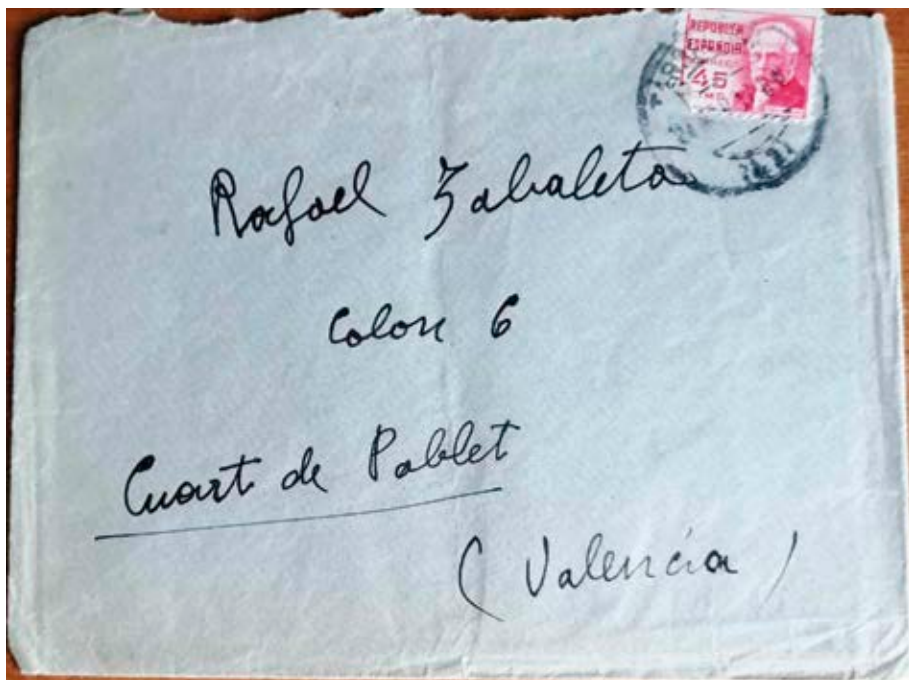 REPUBLICA
ESPAÑOLA
45
Rafael Zabaleta
Colon 6
Cuart de Poblet
(Valencia)